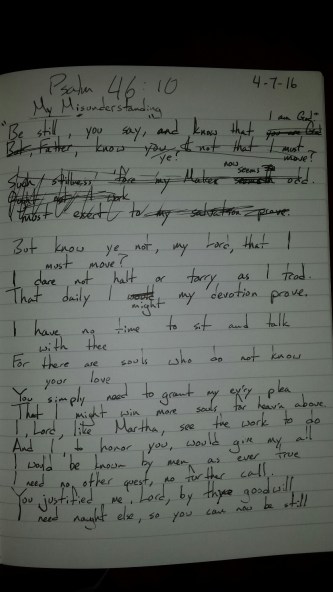 Psalm 46:10
4-7-16
My Misunderstanding
I am God"
"Be still, you say, and know that you are God
But, Father, know you not that I must
ye! move?
now seems
Such stillness 'fore my Maker seemeth odd.
I must exert to my salvation prove.
But know ye not, my Lord, that I
must move?
I dare not halt or tarry as I trod.
That daily I would my devotion prove.
might
I have no time to sit and talk
with thee
For there are souls who do not know
your love
You simply need to grant my ev'ry plea
That I might win more souls for heav'n above
I, Lord, like Martha, see the work to do
And I, to honor you, would give my all
I would be known by men as ever true
I need no other quest, no further call.
You justified me, Lord, by thy goodwill
I need naught else, so you can now be still